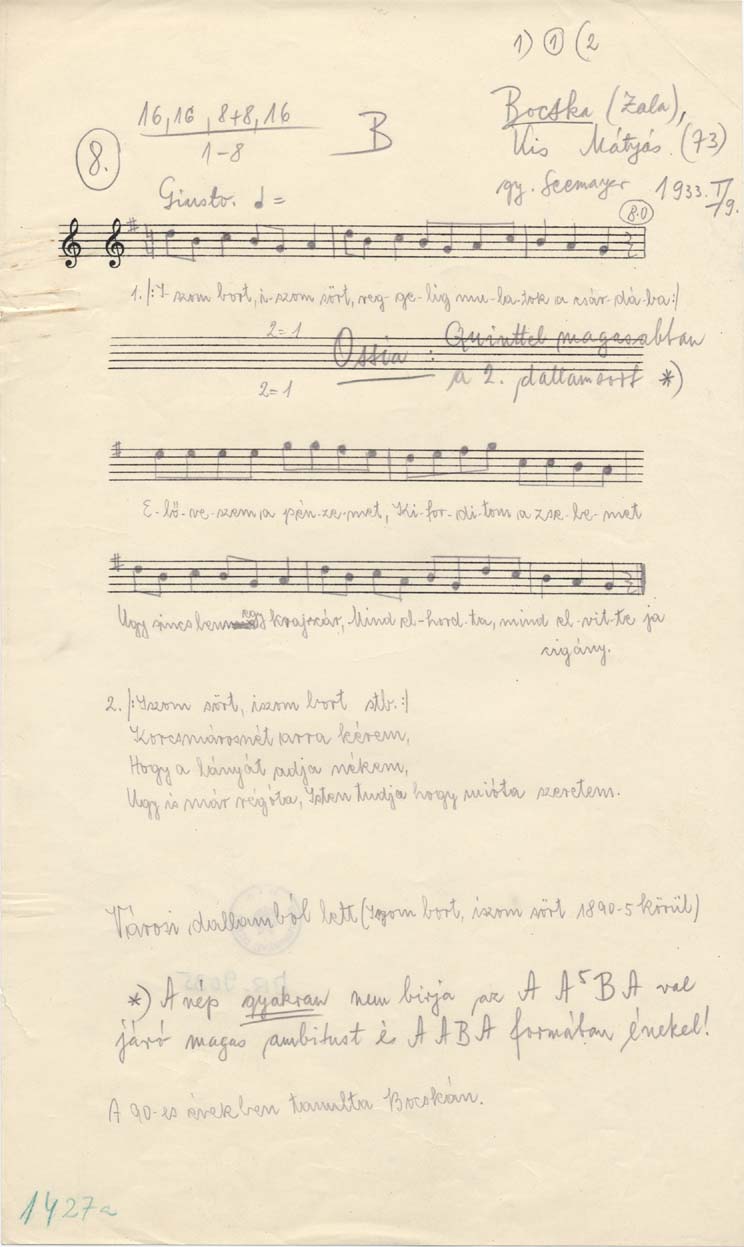 1) ① (2
16, 16, 8+8, 16
1-8
B
8.
Bocska (Zala),
Kis Mátyás. (73)
gy. Seemayer 1933. I/9.
Giusto. =
8.0
1. /:I-szom bort, i-szom sört, reg-ge-lig mu-la-tok a csár-dá-ba:/
2=1
Ossia : Quinttel magasabban
a 2. dallamsort *)
2=1
E-lő-ve-szem a pén-ze-met, Ki-for-di-tom a zse-be-met
Ugy sincs benne egy krajczár, Mind el-hord-ta, mind el-vit-te ja
cigány.
2. /:Iszom sört, iszom bort stb.:/
Korcsmárosnét arra kérem,
Hogy a lányát adja nékem,
Ugy is már régóta, Isten tudja hogy mióta szeretem.
Városi dallamból lett (Iszom bort, iszom sört 1890-5 körül)
*) A nép gyakran nem birja az A A⁵ B A val
járó magas ambitust és A A B A formában énekel!
A 90-es években tanulta Bocskán.
1427a